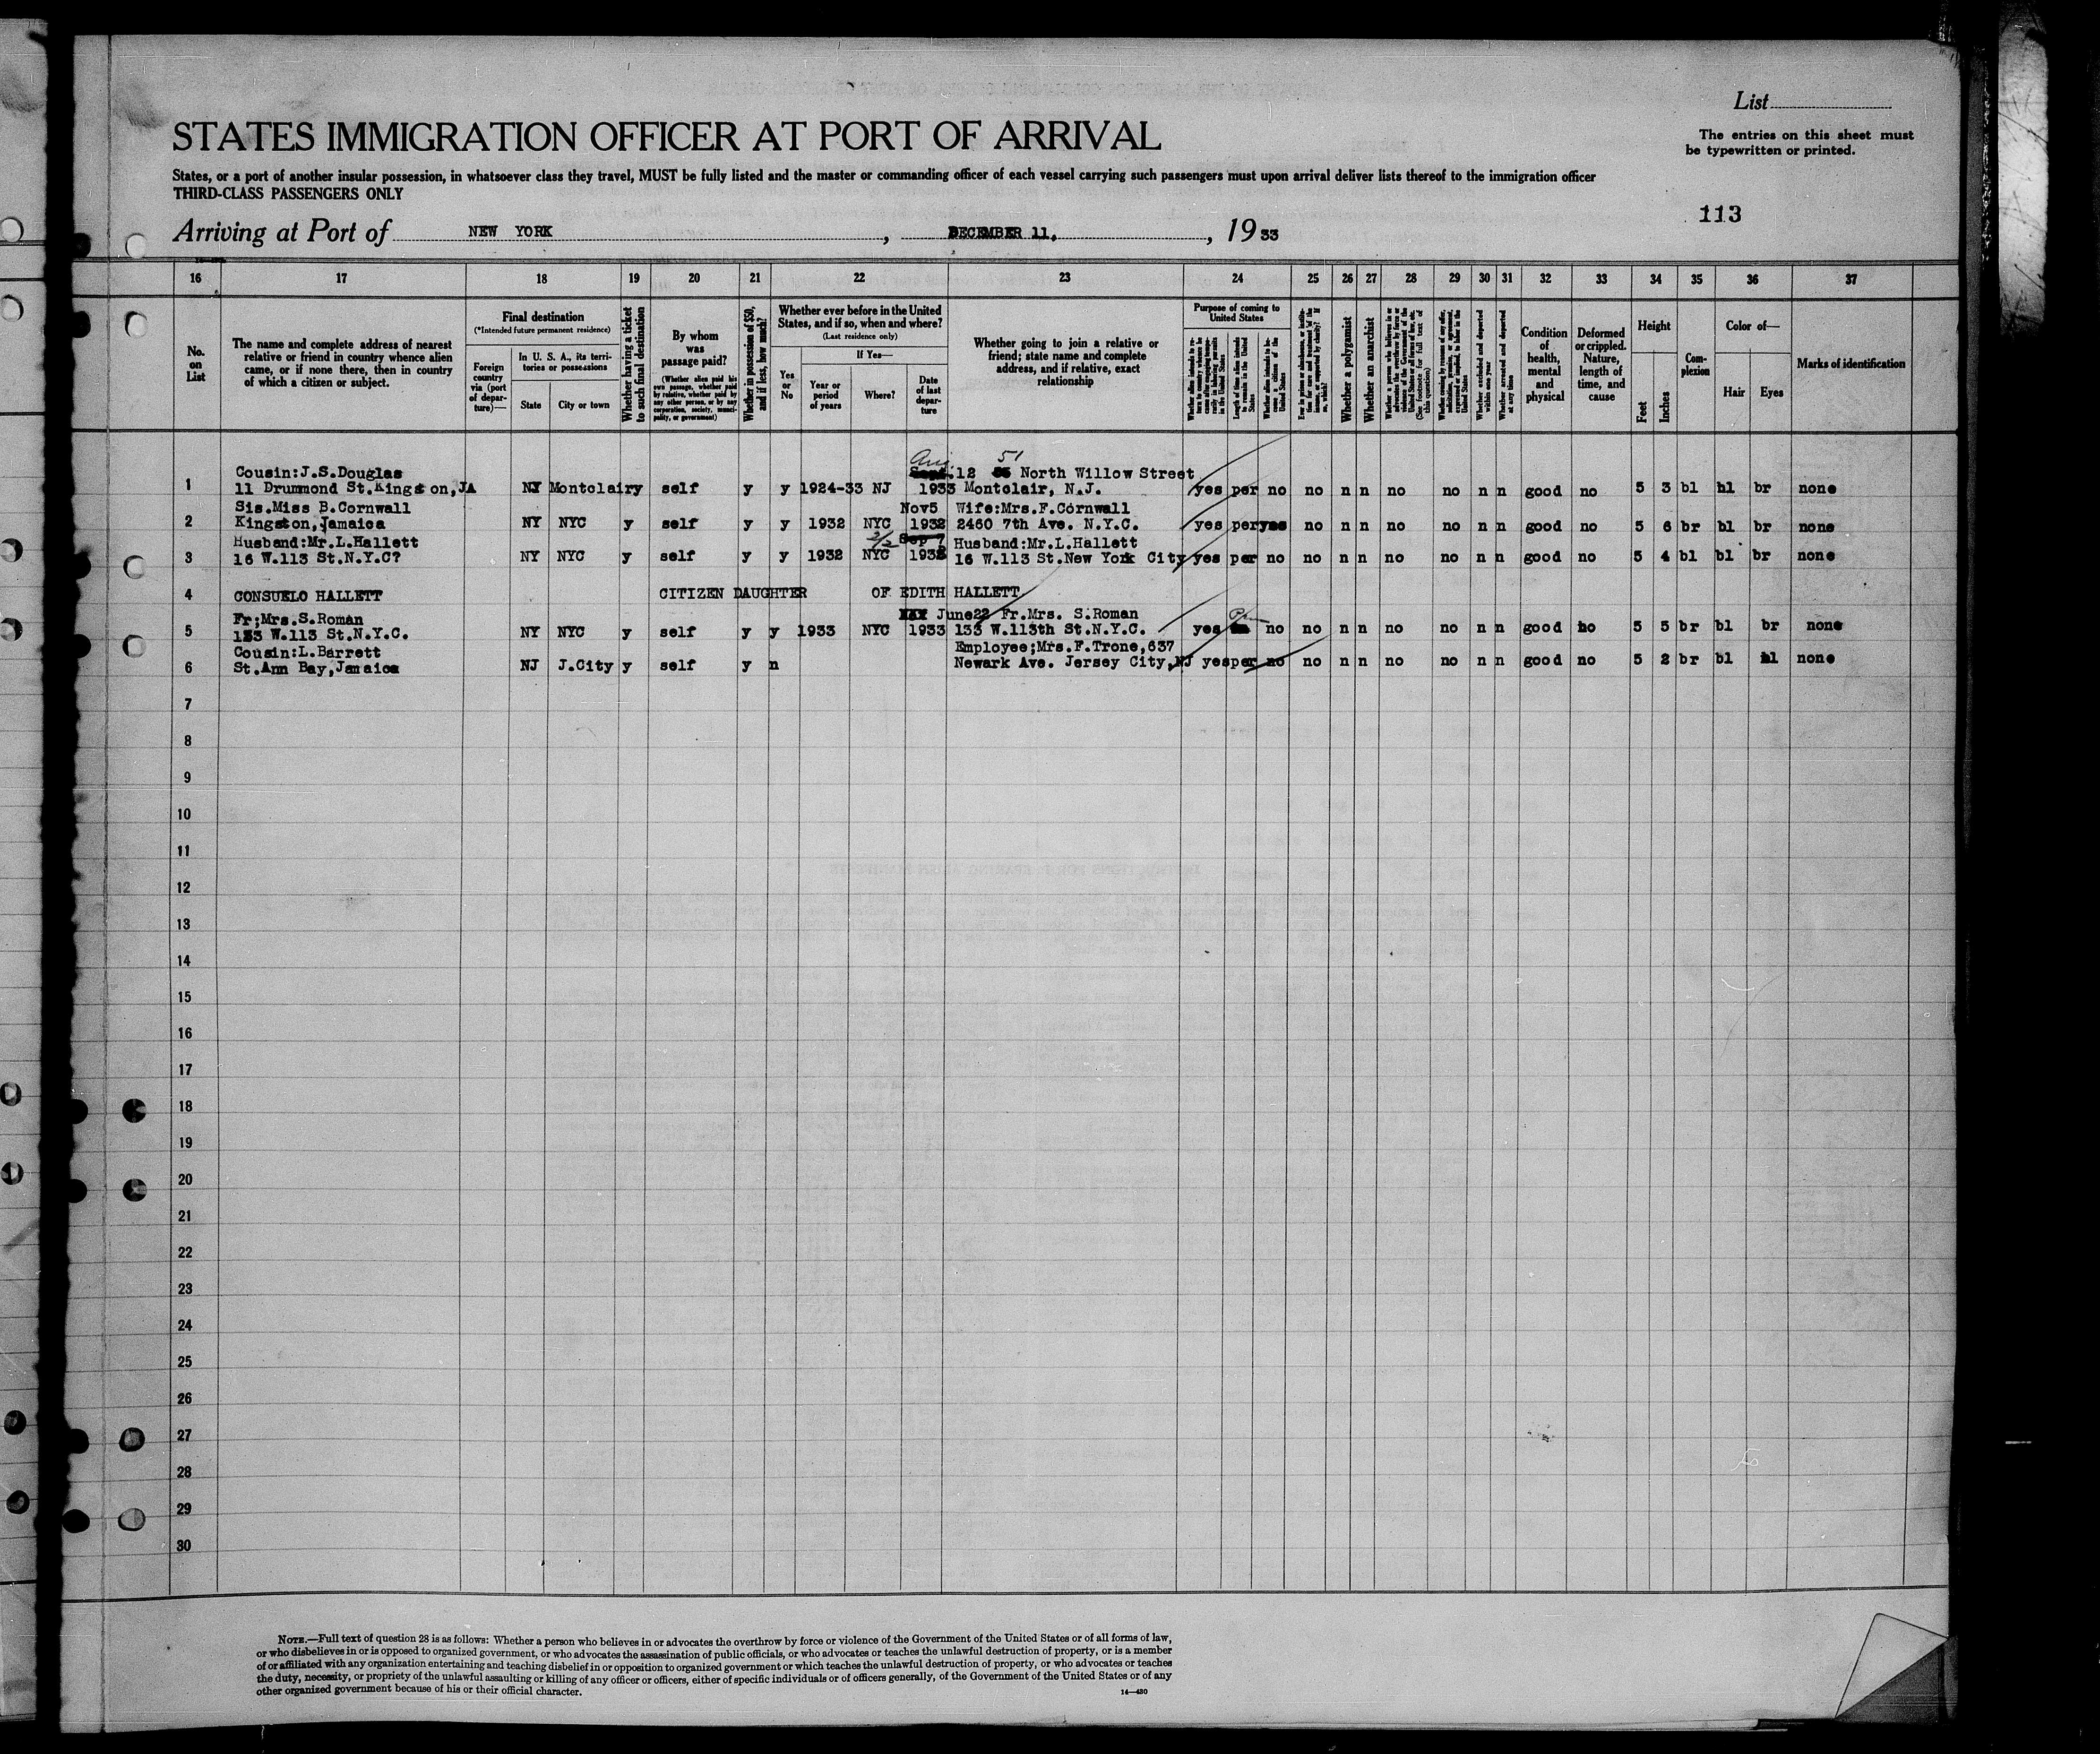 List
STATES IMMIGRATION OFFICER AT PORT OF ARRIVAL
The entries on this sheet must
be typewritten or printed.
States, or a port of another insular possession, in whatsoever class they travel, MUST be fully listed and the master or commanding officer of each vessel carrying such passengers must upon arrival deliver lists thereof to the immigration officer
THIRD-CLASS PASSENGERS ONLY
113
Arriving at Port of NEW YORK, DECEMBER 11, 1933
16 17 18 19 20 21 22 23 24 25 26 27 28 29 30 31 32 33 34 35 36 37
No. on List
The name and complete address of nearest
relative or friend in country whence alien
came, or if none there, then in country
of which a citizen or subject.
Final destination
(*Intended future permanent residence)
Foreign country via (port of departure)—
In U. S. A., its territories or possessions
State
City or town
Whether having a ticket to such final destination
By whom was passage paid?
(Whether alien paid his own passage, whether paid by relative, whether paid by any other person, or by any corporation, society, municipality, or government)
Whether in possession of $50, and if less, how much?
Whether ever before in the United
States, and if so, when and where?
(Last residence only)
Yes or No
If Yes—
Year or period of years
Where?
Date of last departure
Whether going to join a relative or
friend; state name and complete
address, and if relative, exact
relationship
Purpose of coming to
United States
Length of time alien intends to remain in the United States
Whether alien intends to become a citizen of the United States
Whether a polygamist
Whether an anarchist
Whether excluded and deported within one year
Whether arrested and deported at any time
Condition of health, mental and physical
Deformed or crippled. Nature, length of time, and cause
Height
Feet
Inches
Complexion
Color of—
Hair
Eyes
Marks of identification
Aug 51
Cousin:J.S.Douglas Sept.12 North Willow Street
1 11 Drummond St.Kingston,JA NY Montclair y self y y 1924-33 NJ 1933 Montclair, N.J. yes per no no n n no no n n good no 5 3 bl bl br none
Sis.Miss B.Cornwall Nov5 Wife:Mrs.F.Cornwall
2 Kingston,Jamaica NY NYC y self y y 1932 NYC 1932 2460 7th Ave. N.Y.C. yes per yes no n n no no n n good no 5 6 br bl br none
Husband:Mr.L.Hallett Sep 7 Husband:Mr.L.Hallett
3 16 W.113 St.N.Y.C? NY NYC y self y y 1932 NYC 1932 16 W.113 St.New York City yes per no no n n no no n n good no 5 4 bl bl br none
4 CONSUELO HALLETT CITIZEN DAUGHTER OF EDITH HALLETT
Fr;Mrs.S.Roman June22 Fr.Mrs. S.Roman
5 133 W.113 St.N.Y.C. NY NYC y self y y 1933 NYC 1933 133 W.113th St.N.Y.C. yes no no n n no no n n good no 5 5 br bl br none
Cousin:L.Barrett Employee;Mrs.F.Trone,637
6 St.Ann Bay,Jamaica NJ J.City y self y n Newark Ave. Jersey City,NJ yes per no no n n no no n n good no 5 2 br bl bl none
7
8
9
10
11
12
13
14
15
16
17
18
19
20
21
22
23
24
25
26
27
28
29
30
NOTE.—Full text of question 28 is as follows: Whether a person who believes in or advocates the overthrow by force or violence of the Government of the United States or of all forms of law,
or who disbelieves in or is opposed to organized government, or who advocates the assassination of public officials, or who advocates or teaches the unlawful destruction of property, or is a member
of or affiliated with any organization entertaining and teaching disbelief in or opposition to organized government or which teaches the unlawful destruction of property, or who advocates or teaches
the duty, necessity, or propriety of the unlawful assaulting or killing of any officer or officers, either of specific individuals or of officers generally, of the Government of the United States or of any
other organized government because of his or their official character.
14—430